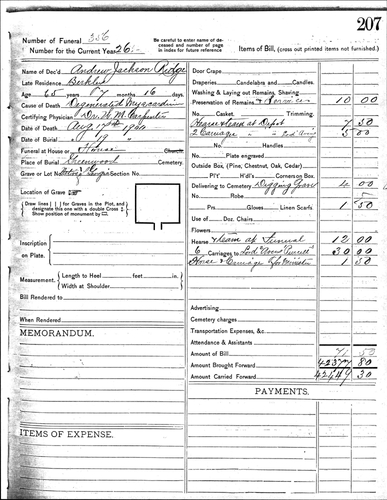 207
Number of Funeral 356
Number for the Current Year 26
Be carefully to enter name of deceased and number of page in index for future reference
Items of Bill, (cross out printed items not furnished.)
Name of Dec'd Andrew Jackson Ridge
Late Residence Berkley
Age 65 years 7 months 16 days.
Cause of Death Degenerated Myocardium
Certifying Physician Dr. W. M. Carpenter
Date of Death Aug 17th 1904
Date of Burial " 19 "
Funeral at House or Church.
Place of Burial Greenwood Cemetery.
Grave or Lot Section No.
Location of Grave
Draw lines | | for Graves in the Plot, and designate this one with a double Cross
Show position of monument by
Inscription on Plate.
Measurement. Length to Heel feet in.
Width at Shoulder
Bill Rendered to
When Rendered
MEMORANDUM.
ITEMS OF EXPENSE.
Door Crape
Draperies Candelabra and Candles.
Washing & Laying out Remains. Shaving.
Preservation of Remains & Services 10 00
No. Casket. Trimming.
Hearse & team at Depot 7 50
2 Carriages " " 5 00
No. Handles
Plate engraved
Outside Box, (Pine, Chestnut, Oak, Cedar)
P'l'Y H'd's Cornerson Box
Delivering to Cemetery Digging Grave 4 00
No. Robe
Prs Gloves Linen Scarfs 1 50
Use of Doz. Chairs
Flowers
Hearse & team at Funeral 12 00
6 Carriages to 30 00
Horse & Carriage for Minister 1 50
Advertising
Cemetery charges
Transportation Expenses, &c.
Attendance & Assistants
Amount of Bill 71 50
Amount Brought Forward 42377 80
Amount Carried Forward 42449 30
PAYMENTS.